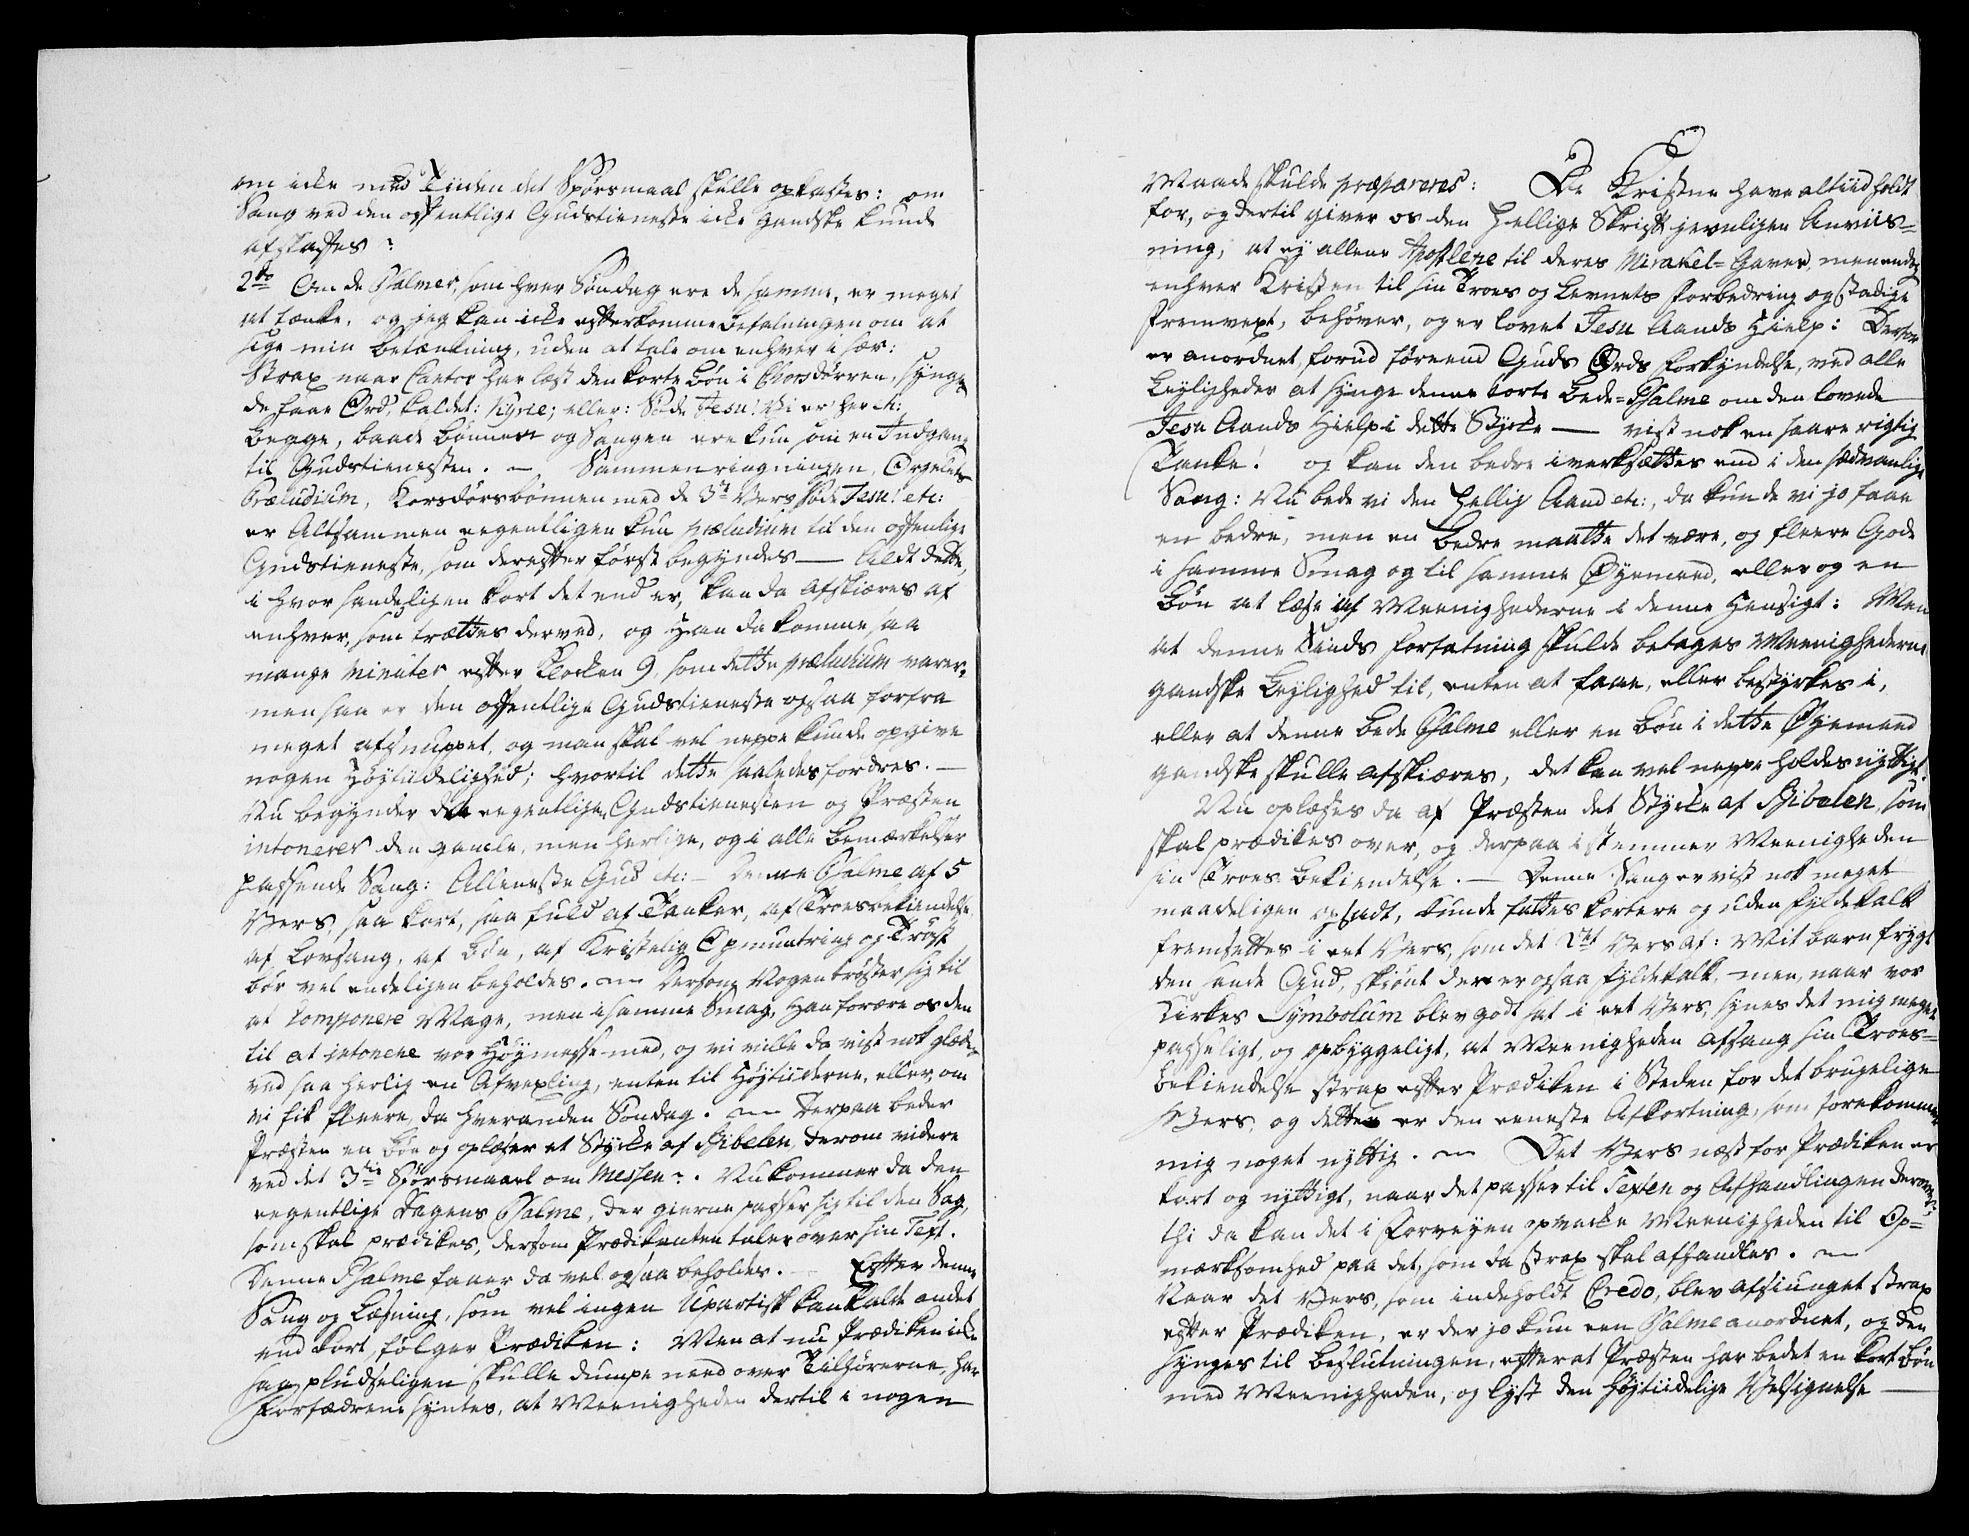 om icke med Tiiden det Spørsmaal skulle opkastes: om
Sang ved den offentlige Gudstieneste icke gandske kunde
afskaffes?
2do Om de Psalmer, som hver Søndag ere de samme, er meget
at tænke, og jeg kan icke efterkomme Befalningen om at
sige min Betænkning, uden at tale om enhver i sær:
Strax naar Cantor har læst den korte Bøn i Chorsdørren, synges
de faae Ord, kaldet: Kyrie; eller: Søde Jesu! Vi er her etc:
begge, baade Bønnen og Sangen ere kun som en Indgang
til Gudstienesten. — Sammenringningen, Orgelets
Præludium, Korsdørsbønnen med de 3de Vers søde Jesu! etc:
er Altsammen eegentligen kun præludium til den offenlige
Gudstieneste, som derefter først begyndes — Aldt dette,
i hvor sandeligen kort det end er, kan da afskiæres af
enhver, som trættes derved, og Han da komme saa
mange Minuter efter Klocken 9, som dette præludium varer.
men saa er den offentlige Gudstieneste ogsaa forfra
meget afsnuppet, og man skal vel neppe kunde opgive
nogen Høytiidelighed; hvortil dette saaledes fordres. —
Nu begynder den eegentlige Gudstienesten og Præsten
intonerer den gamle, men herlige, og i alle Bemærkelser
passende Sang: Alleneste Gud etc: — Denne Psalme af 5
Vers, saa kort, saa fuld af Tanker, af Troesbekiendelse
af Lovsang, af Bøn, af Kristelig Opmuntring og Trøst
bør vel endeligen beholdes. — Dersom Nogen trøster sig til
at Componere Mage, men i samme Smag, Han forære os den
til at intonere vor Høymesse med, og vi ville da vist nok glædes
ved saa herlig en Afvexling, enten til Høytiiderne, eller, om
vi fik fleere, da hveranden Søndag. — Derpaa beder
Præsten en Bøn og oplæser et Stycke af Bibelen, derom videre
ved det 3die Spørsmaal om Messen. Nu kommer da den
eegentlige Dagens Psalme, der gierne passer sig til den Sag,
som skal prædikes, dersom Prædikanten taler over sin Text.
Denne Psalme faaer da vel ogsaa beholdes. — Efter denne
Sang og Læsning, som vel ingen Upartisk kan kalde andet
end kort, følger Prædiken: Men at nu Prædiken icke
saa pludseligen skulle dumpe need over Tilhørerne, har
Forfædrene syntes, at Meenigheden dertil i nogen
Maade skulde præpareres: De Kristne have altiid holdt
for, og dertil giver os den Hellige Skrift jevnligen Anviis-
ning, at ey allene Apostlene til deres Mirakel-Gaver, men endog
enhver Kristen til sin Troes og Levnets Forbedring og stadige
Fremvext, behøver, og er lovet Jesu Aands Hielp: Derfor
er anordnet, forud førend Guds Ords Forkyndelse, ved alle
Leyligheder at synge denne korte Bede-Psalme om den lovede
Jesu Aands Hielp i dette Stycke — vist nok en saare rigtig
Tanke! og kan den bedre iverksættes end i den sædvanlige
Sang: Nu bede vi den Hellig Aand etc:, da kunde vi jo faae
en bedre, men en bedre maatte det være, og fleere Gode
i samme Smag og til samme Øyemeed, eller og en
Bøn at læse af Meenighederne i denne Hensigt: Men
at denne Sinds Forfatning skulde betages Meenighederne
gandske Leylighed til, enten at faae, eller bestyrkes i,
eller at denne Bede Psalme eller en Bøn i dette Øyemeed
gandske skulle afskiæres, det kan vel neppe holdes nyttigt.
Nu oplæses da af Præsten det Stycke af Bibelen, som
skal prædikes over, og derpaa istemmer Meenigheden
sin Troes Bekiendelse. — Denne Sang er vist nok meget
maadeligen opsadt, kunde fattes kortere og uden Fyldekalk
fremsettes i eet Vers, som det Vers af: Mit barn frygt
den sande Gud, skiønt der er ogsaa fyldekalk, men, naar vor
Kirkes Symbolum blev godt sat i eet Vers, synes det mig meget
passeligt, og opbyggeligt, at Meenigheden afsang sin Troes-
bekiendelse strax efter Prædiken i Steden for det brugelige
Vers, og dette er den eeneste Afkortning, som forekommer
mig noget nyttig. — Det Vers næst for Prædiken er
kort og nyttigt, naar det passer til Texten og Afhandlingen derover:
thi da kan det i Forveyen opvecke Meenigheden til Op-
mærksomhed paa det, som da strax skal afhandles. —
Naar det Vers, som indeholdt Credo, blev afsiunget strax
efter Prædiken, er der jo kun een Psalme anordnet, og den
synges til Beslutningen, efterat Præsten har bedet en kort Bøn
med Meenigheden, og lyst den høytiidelige Velsignelse —